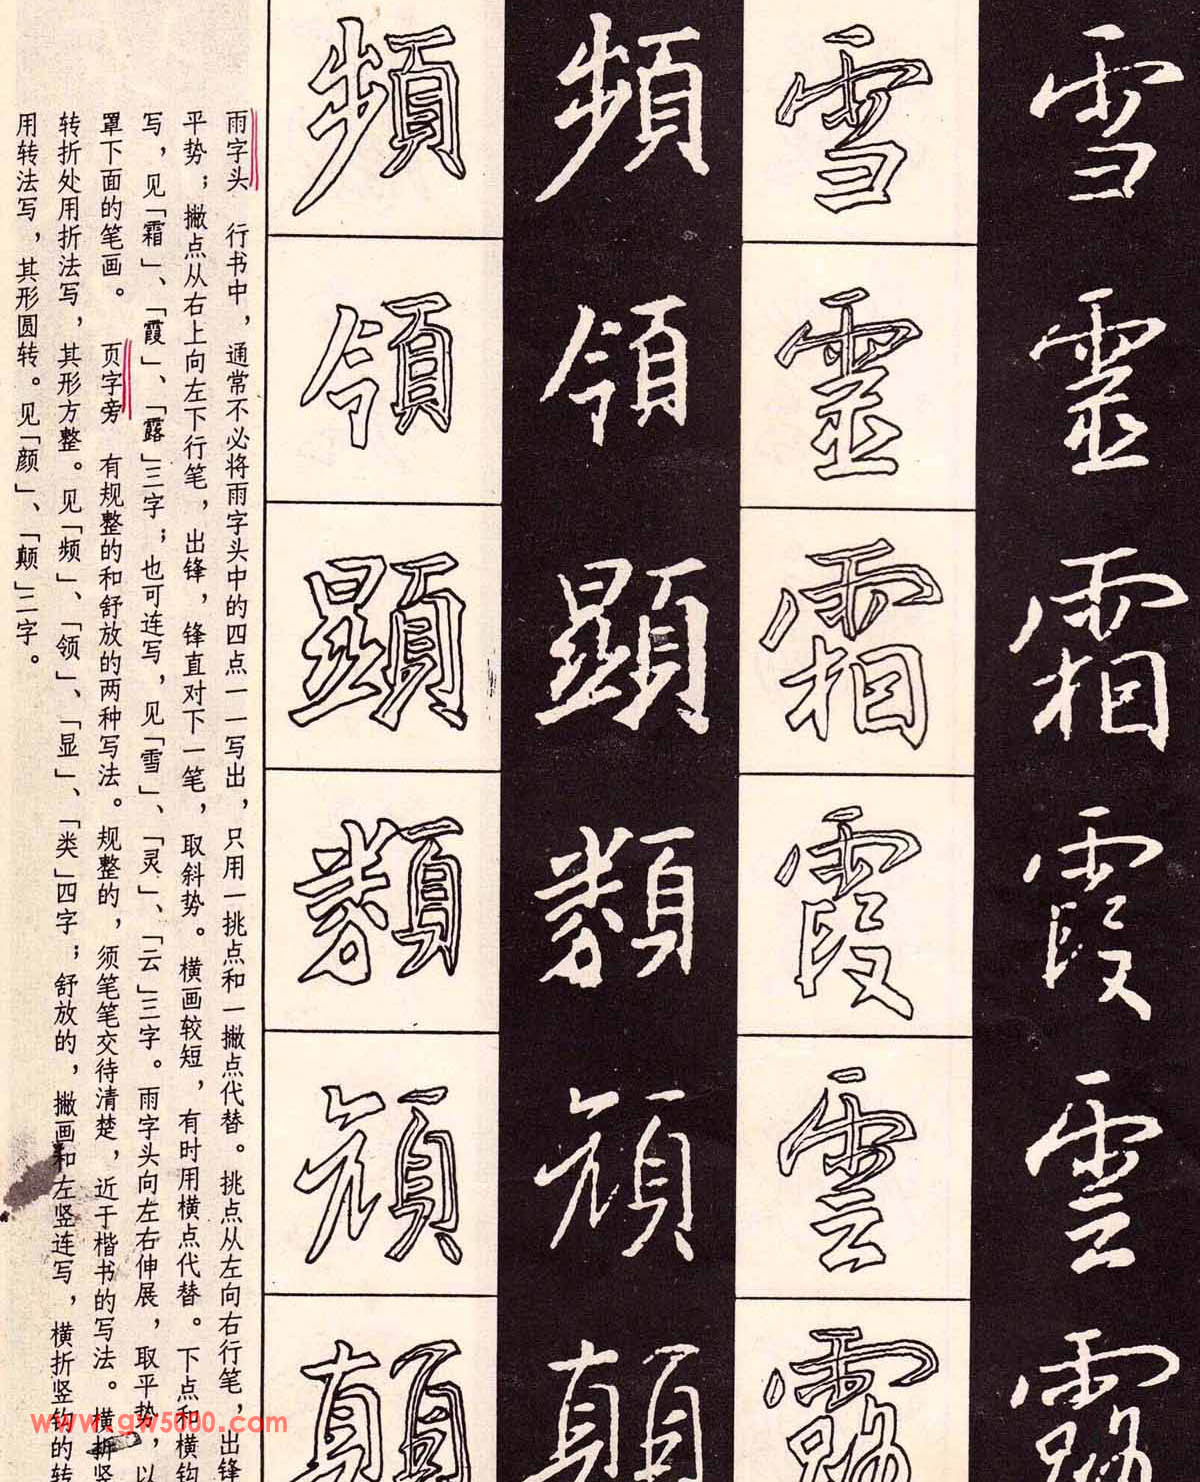 雪
靈
霜
霞
雲
露
雪
靈
霜
霞
雲
露
頻
領
顯
類
顔
顛
頻
領
顯
類
顔
顛
雨字头 行书中，通常不必将雨字头中的四点一一写出，只用一挑点和一撇点代替。挑点从左向右行笔，出锋
平势；撇点从右上向左下行笔，出锋，锋直对下一笔，取斜势。横画较短，有时用横点代替。下点和横钩
写，见「霜」、「霞」、「露」三字；也可连写，见「雪」、「灵」、「云」三字。雨字头向左右伸展，取平势，以
罩下面的笔画。 页字旁 有规整的和舒放的两种写法。规整的，须笔笔交待清楚，近于楷书的写法。横折竖
转折处用折法写，其形方整。见「频」、「领」、「显」、「类」四字；舒放的，撇画和左竖连写，横折竖钩的转
用转法写，其形圆转。见「颜」、「颠」二字。
www.gw5000.com